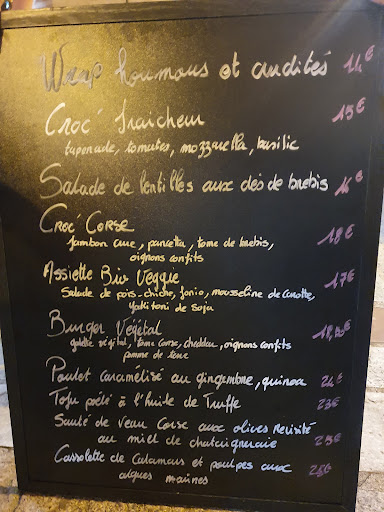 Wrap houmous et crudités 14€
Croc' fraicheur 15€
tapenade, tomates, mozzarella, basilic
Salade de lentilles aux dés de brebis 16€
Croc' Corse 18€
Jambon cru, pancetta, tome de brebis,
oignons confits
Assiette Bio Veggie 17€
Salade de pois-chiche, fonio, mousseline de carotte,
Yakitori de Soja
Burger Végétal
galette végétal, tome corse, cheddar, oignons confits
pomme de terre
Poulet caramélisé au gingembre, quinoa 24€
Tofu poêlé à l'huile de Truffe 23€
Sauté de veau Corse aux olives revisité
au miel de chataigneraie 25€
Cassolette de Calamars et poulpes aux
algues marines